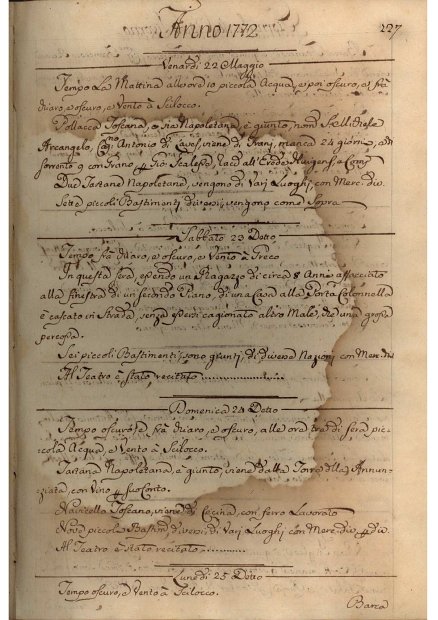 Anno 1772
227
Venardi 22 Maggio
Tempo La Mattina piccola Acqua, e poi oscuro, e fra
diaro, e oscuro, e Vento à Scilocco.
Pollacca Toscana, o sia Napoletana, è giunto, nom
Arcangelo, Cap. Antonio di viene di Trani, manca 24 giorni, con
con Grano, Gio
Due Tartane Napoletane, vengono da Varj Luoghi, con Merc. div.
Sette piccoli Bastimenti diversi, vengono come Sopra
Sabbato 23 Detto
Tempo fra diaro, e oscuro, e Vento à Greco
In questa sera, essendo un Ragazzo di circa 8 Anni affacciato
alla finestra di un secondo Piano, di una Casa alla Porta Colonnella
è cascato in Strada, senza essersi cagionato altro Male, che una grossa
percossa.
Sei piccoli Bastimenti, sono giunti, di diverse Nazioni con Mer. div
Al Teatro è stato recitato
Domenica 24 Detto
Tempo oscuro, e fra diaro, e oscuro, alle ore tre di sera pic-
cola Acqua, e Vento à Scilocco.
Tartana Napoletana, è giunto, viene dalla Torre dell Annun-
ziata, con Vino suo Conto.
Navicello Toscano, viene di Cecina, con ferro Lavorato
Nove piccoli Bastim. diversi, di Varj Luoghi con Merc. div. div.
Al Teatro è stato recitato
Lunedi 25 Detto
Tempo oscuro, e Vento à Scilocco.
Barca